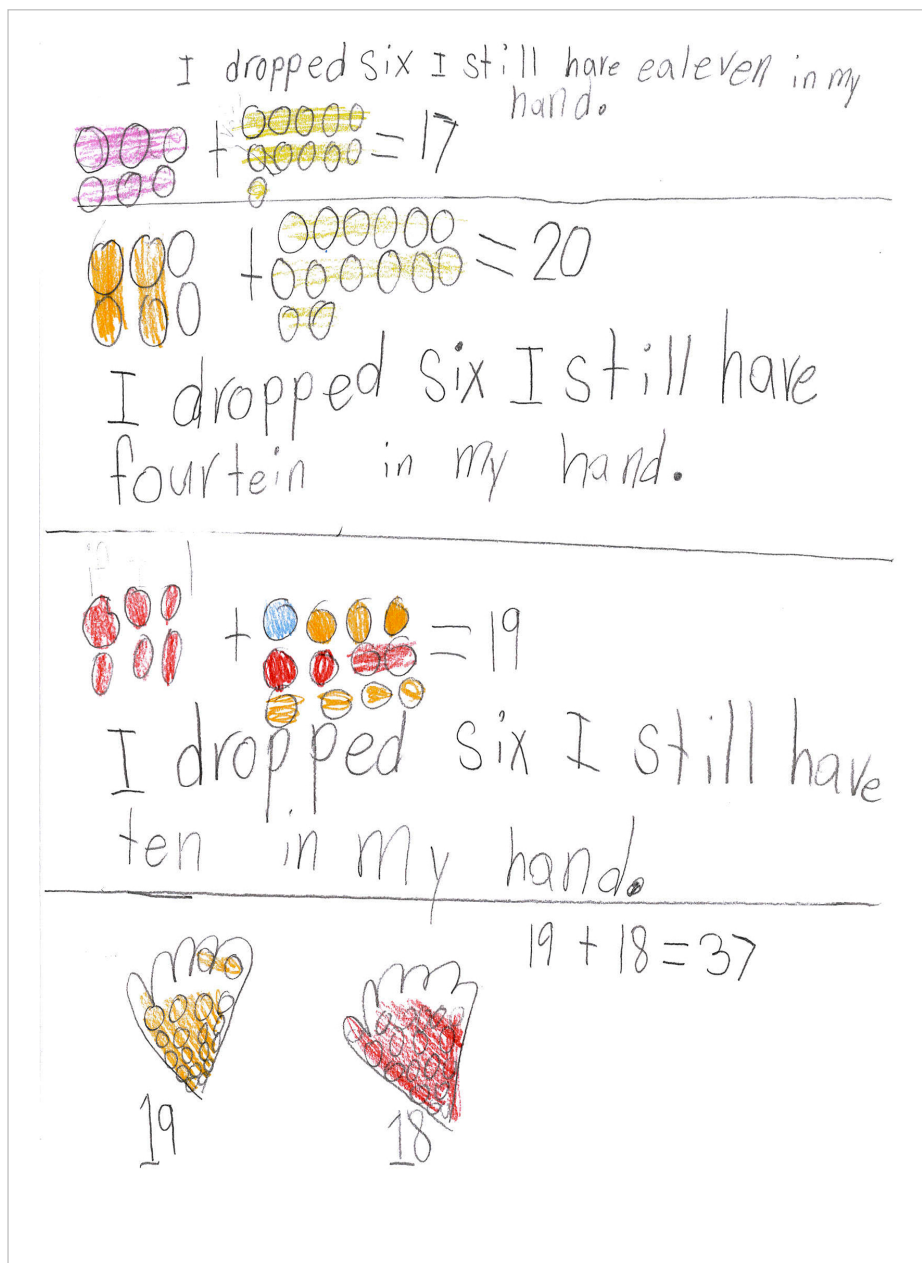 I dropped six I still have ealeven in my
hand.
+ = 17
+ = 20
I dropped six I still have
fourtein in my hand.
+ = 19
I dropped six I still have
ten in my hand.
19 + 18 = 37
19 18